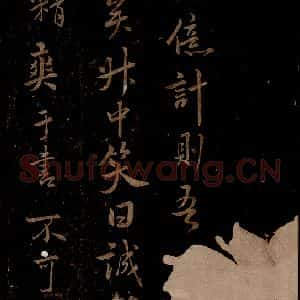 億計則吾
矣升中笑曰誠
精爽于書不可
Shufawang.CN